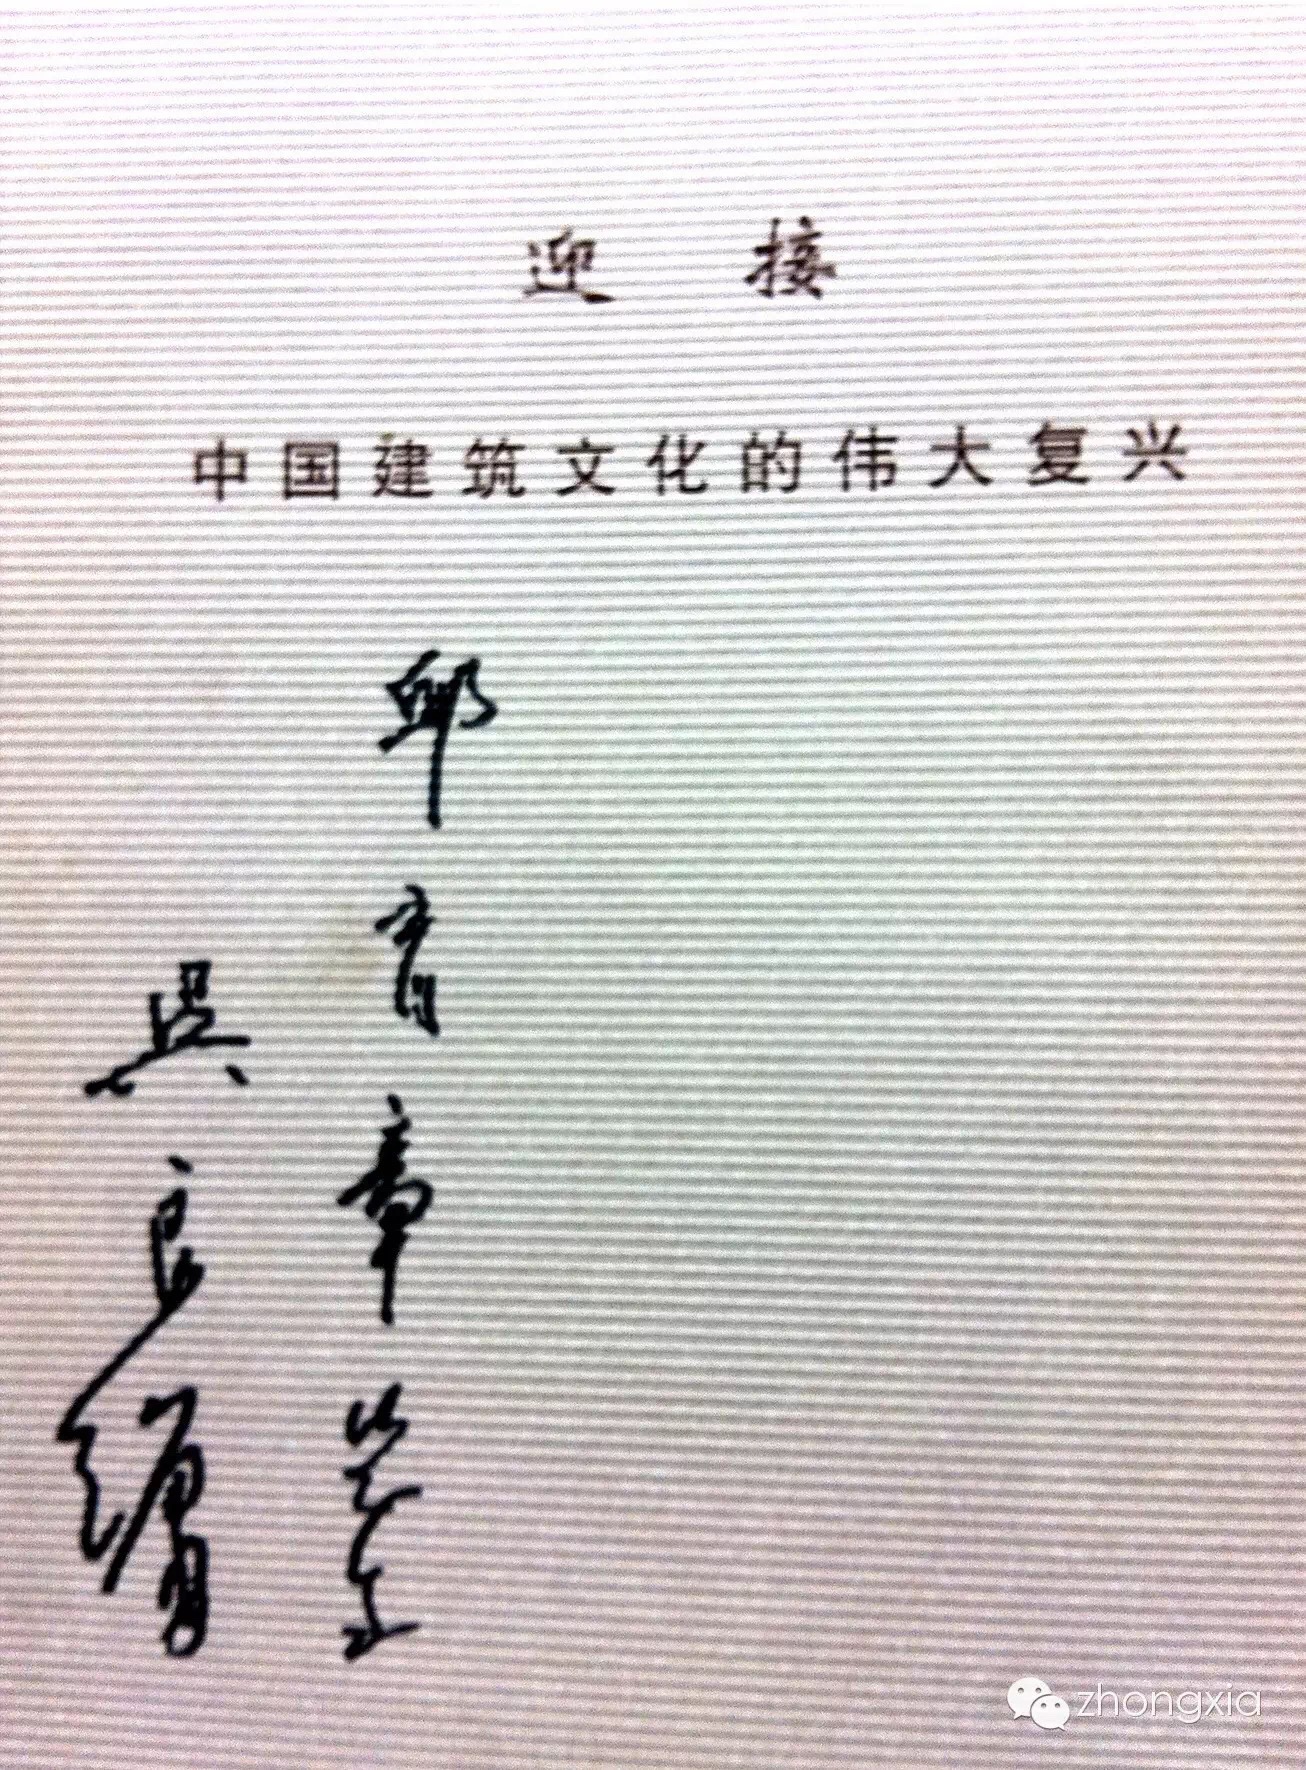 迎接
中国建筑文化的伟大复兴
邱育章鉴正
吴良镛
zhongxia